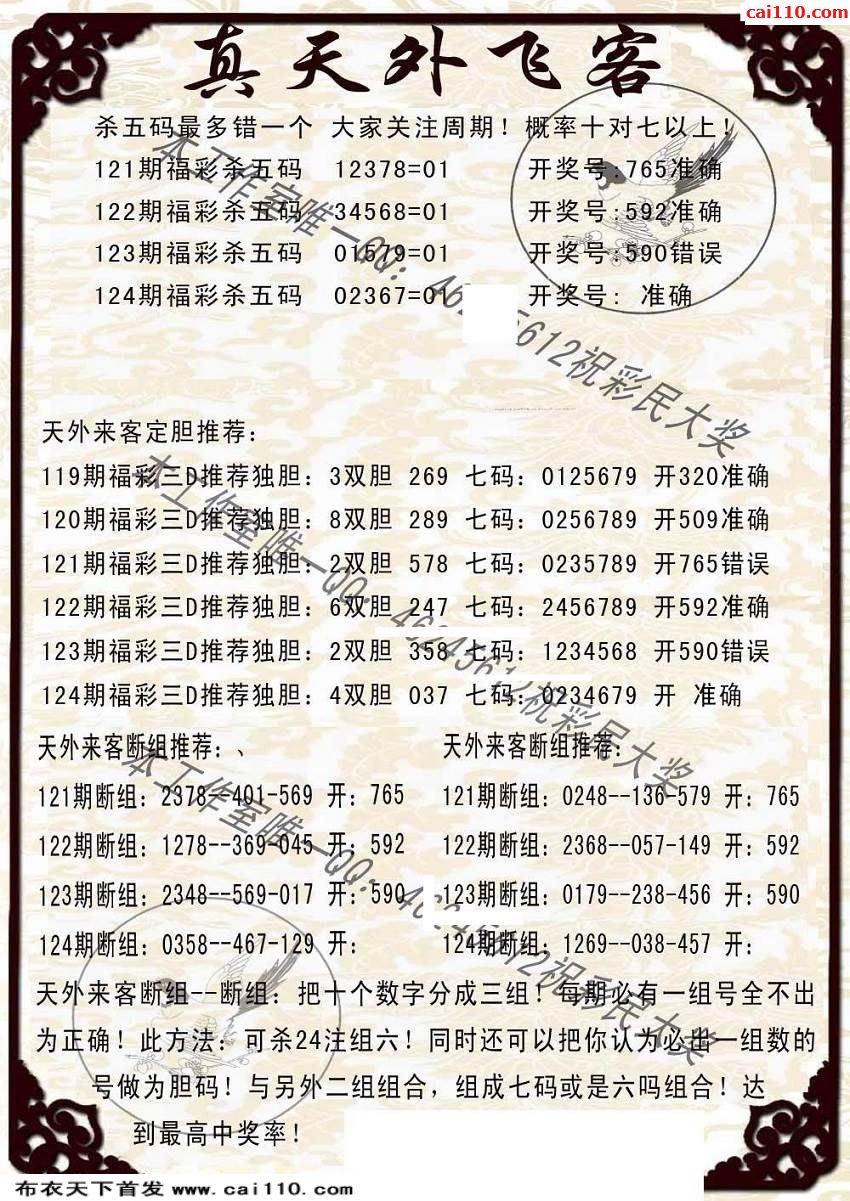 cai110.com
真天外飞客
杀五码最多错一个 大家关注周期！概率十对七以上！
121期福彩杀五码 12378=01 开奖号:765准确
122期福彩杀五码 34568=01 开奖号:592准确
123期福彩杀五码 01579=01 开奖号:590错误
124期福彩杀五码 02367=01 开奖号: 准确
天外来客定胆推荐：
119期福彩三D推荐独胆：3双胆 269 七码：0125679 开320准确
120期福彩三D推荐独胆：8双胆 289 七码：0256789 开509准确
121期福彩三D推荐独胆：2双胆 578 七码：0235789 开765错误
122期福彩三D推荐独胆：6双胆 247 七码：2456789 开592准确
123期福彩三D推荐独胆：2双胆 358 七码：1234568 开590错误
124期福彩三D推荐独胆：4双胆 037 七码：0234679 开 准确
天外来客断组推荐：、 天外来客断组推荐：
121期断组：2378--401-569 开：765 121期断组：0248--136-579 开：765
122期断组：1278--369-045 开：592 122期断组：2368--057-149 开：592
123期断组：2348--569-017 开：590 123期断组：0179--238-456 开：590
124期断组：0358--467-129 开： 124期断组：1269--038-457 开：
天外来客断组--断组：把十个数字分成三组！每期必有一组号全不出
为正确！此方法：可杀24注组六！同时还可以把你认为必出一组数的
号做为胆码！与另外二组组合，组成七码或是六吗组合！达
到最高中奖率！
本工作室唯一QQ：46 5612祝彩民大奖
本工作室唯一QQ：46245612祝彩民大奖
本工作室唯一QQ：46245612祝彩民大奖
布衣天下首发 www.cai110.com